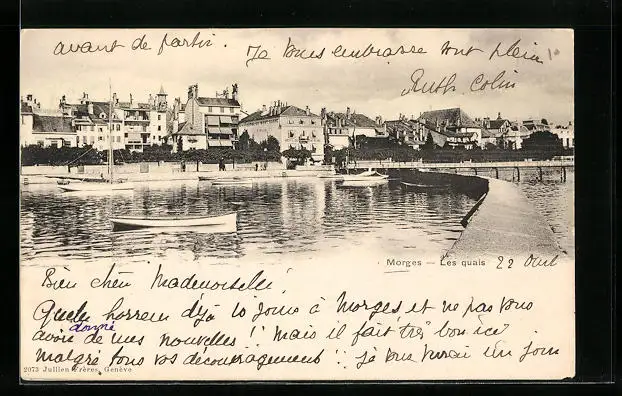 avant de partir. Je vous embrasse tout plein
Ruth Colin
Morges – Les quais 22 Avril
Bien chère Mademoiselle!
Quelle horreur déjà 10 jours à Morges et ne pas vous
avoir donné de mes nouvelles!! Mais il fait très bon ici
malgré tous vos découragements!! je vous un jour
2073 Jullien Frères, Genève